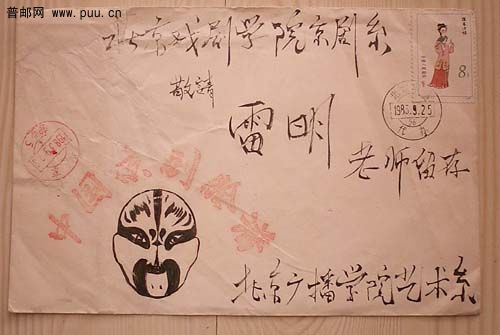 普邮网 www.puu.cn
北京戏剧学院京剧系
敬請
雷明
老师留存
中国京剧脸谱
北京广播学院艺术系
8分
1983.9.25